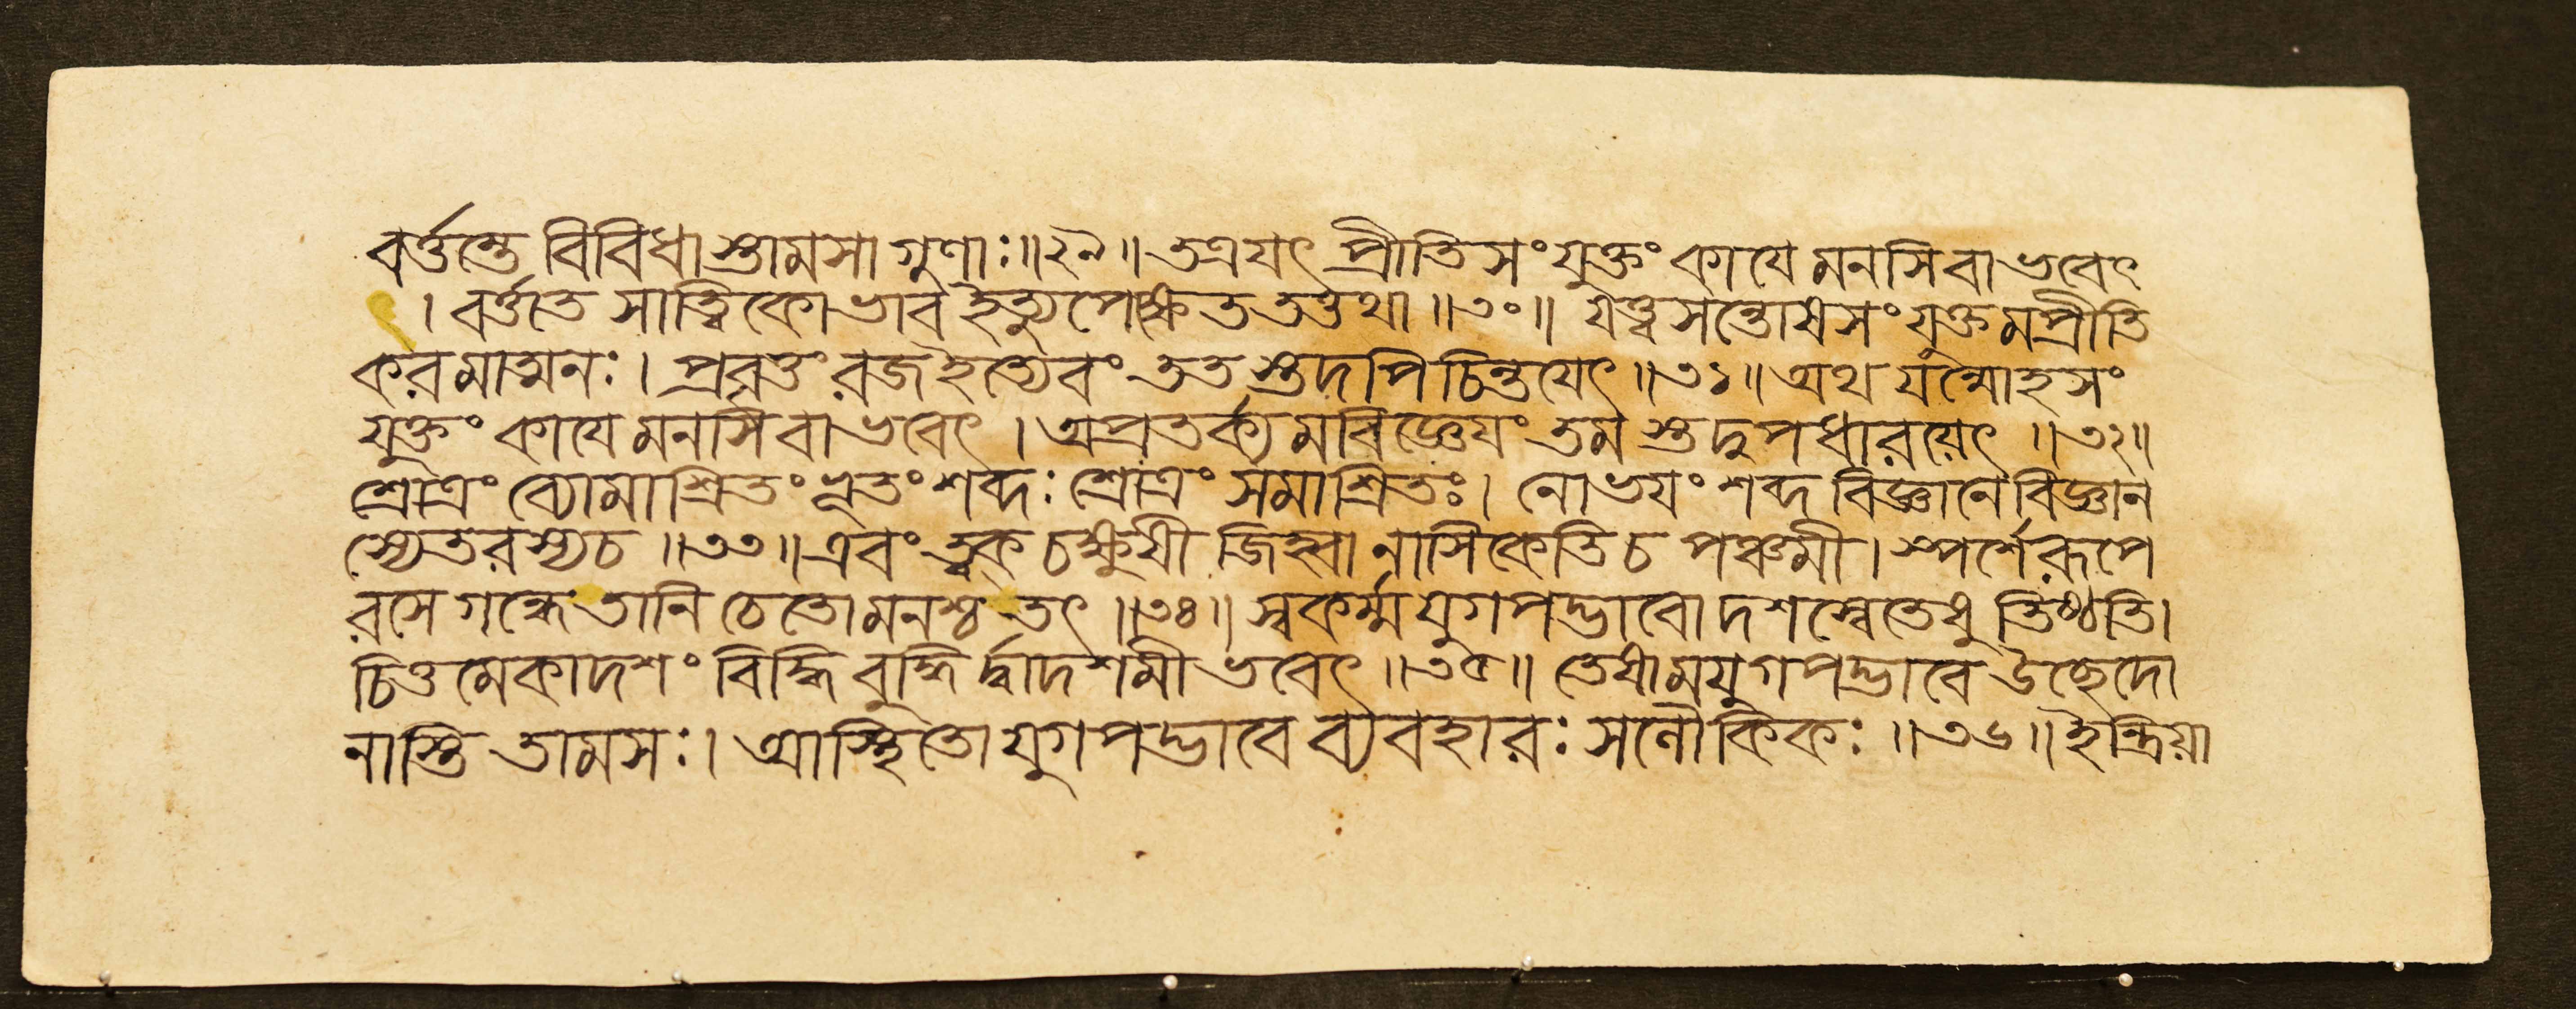 বর্ত্তন্তে বিবিধাস্তামসা গুণাঃ॥২৯॥ তত্রযৎ প্রীতিসংযুক্তং কাযে মনসিবাভবেৎ
। বর্ত্ততে সাত্ত্বিকোভাব ইত্যুপেক্ষেত তত্তথা॥৩০॥ যত্ত্বসন্তোষসংযুক্তমপ্রীতি
করমাত্মনঃ। প্রবৃত্তং রজইত্যেবং ততস্তদপিচিন্তযেৎ॥৩১॥ অথ যন্মোহসং
যুক্তং কাযে মনসিবাভবেৎ। অপ্রতর্ক্যমবিজ্ঞেযং তমস্তদুপধারয়েৎ॥৩২॥
শ্রোত্রং ব্যোমাশ্রিতং ভূতং শব্দঃ শ্রোত্রং সমাশ্রিতঃ। নোভযং শব্দবিজ্ঞানে বিজ্ঞান
স্যেতরস্যচ॥৩৩॥ এবং ত্বক্ চক্ষুষী জিহ্বা নাসিকেতিচ পঞ্চমী। স্পর্শেরূপে
রসে গন্ধেতানি চেতোমনশ্চ তৎ॥৩৪॥ স্বকর্ম্মযুগপদ্ভাবো দশস্বেতেষু তিষ্ঠতি।
চিত্তমেকাদশং বিদ্ধি বুদ্ধির্দ্বাদশমীভবেৎ॥৩৫॥ তেষামযুগপদ্ভাবে উচ্ছেদো
নাস্তি তামসঃ। আস্থিতো যুগপদ্ভাবে ব্যবহারঃ সলৌকিকঃ॥৩৬॥ ইন্দ্রিয়া